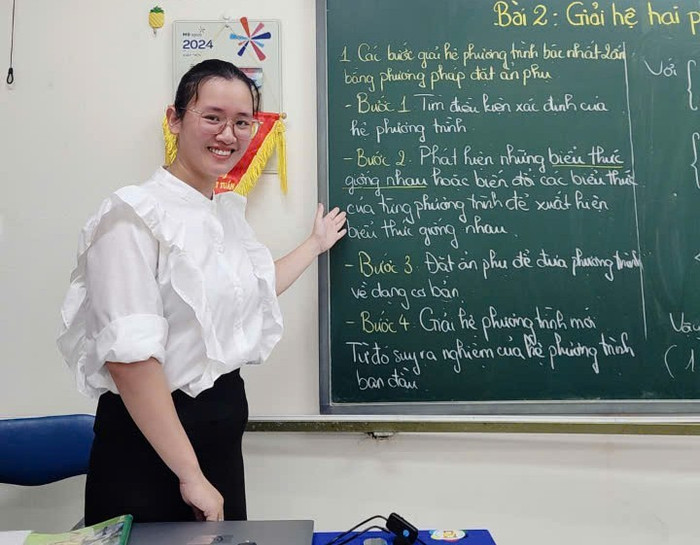 2024
TUẦN
Bài 2: Giải hệ hai p
1 Các bước giải hệ phương trình bậc nhất 2 ẩn
bằng phương pháp đặt ẩn phụ
- Bước 1 Tìm điều kiện xác định của
hệ phương trình
- Bước 2. Phát hiện những biểu thức
giống nhau hoặc biến đổi các biểu thức
của từng phương trình để xuất hiện
biểu thức giống nhau.
- Bước 3. Đặt ẩn phụ để đưa phương trình
về dạng cơ bản
- Bước 4. Giải hệ phương trình mới
Từ đó suy ra nghiệm của hệ phương trình
ban đầu
Với {
{
Với
(1